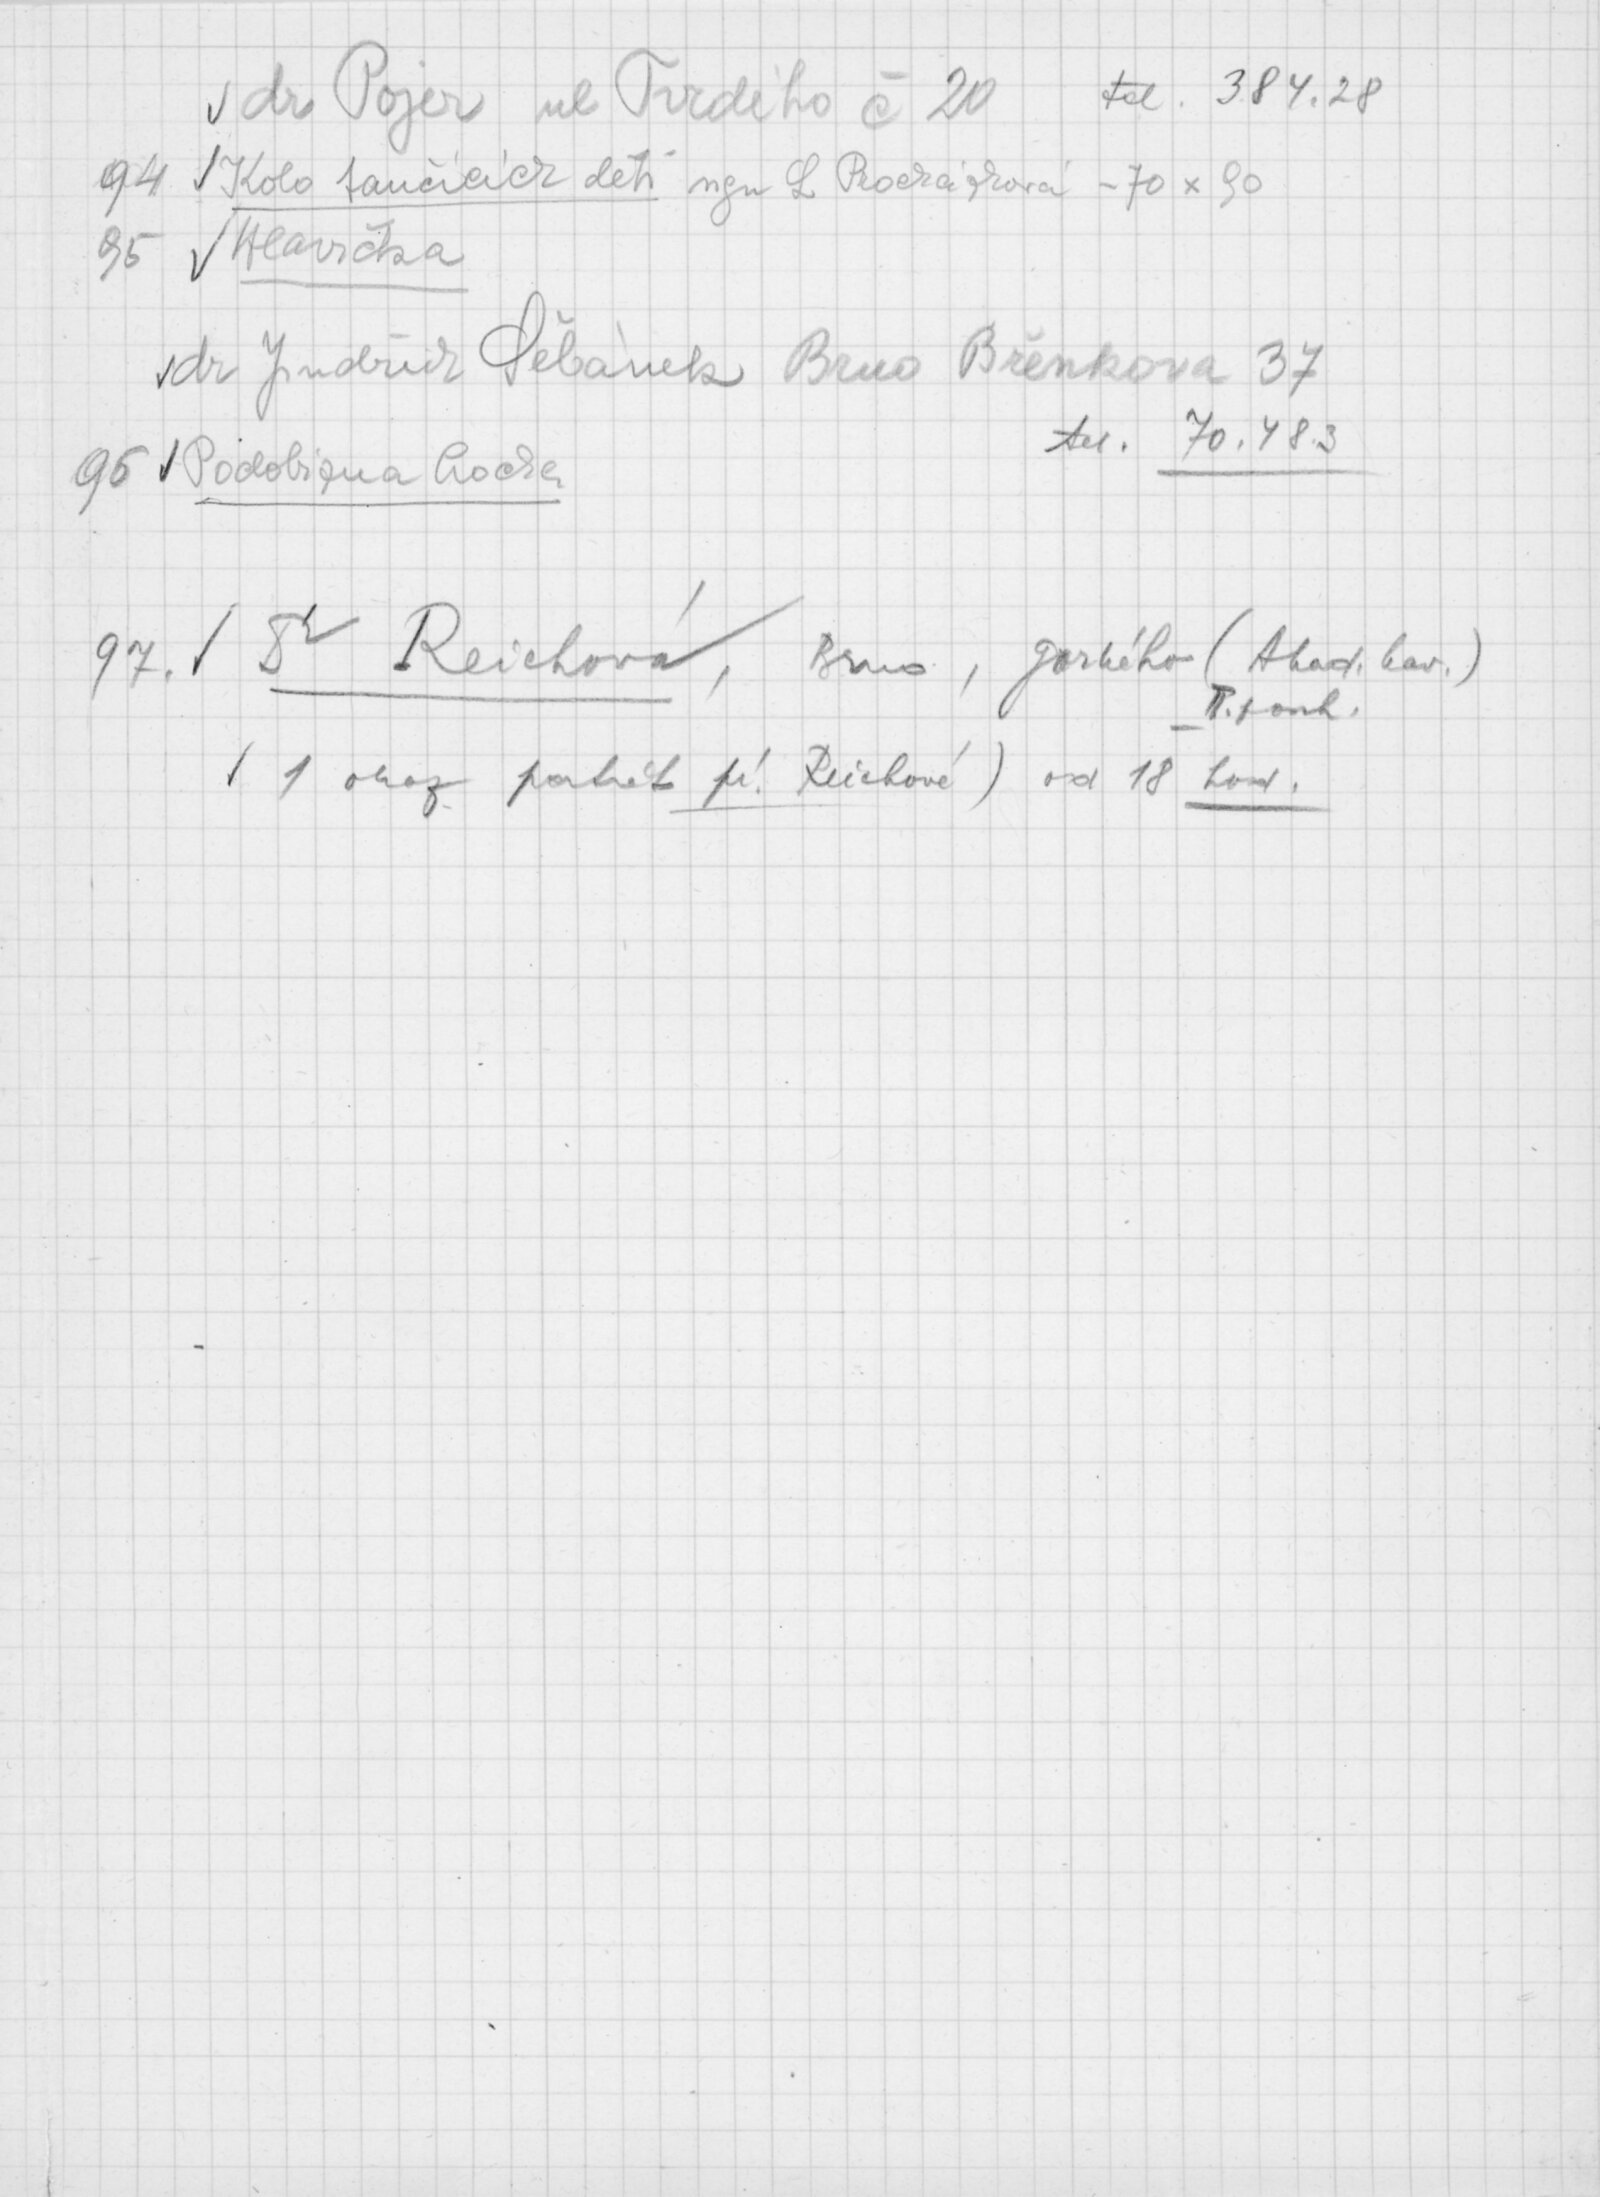 ✓ dr Pojer ul Tvrdého č 20 tel. 384.28
94 ✓ Kolo tančících dětí sgn L Procházková - 70 x 90
95 ✓ Hlavička
✓ dr Jindřich Šebánek Brno Břenkova 37
tel. 70.483
96 ✓ Podobizna hocha
97. ✓ Dr Reichová, Brno, Gorkého (Akad. kav.)
II. posch.
✓ 1 obraz portrét pí. Reichové) od 18 hod.